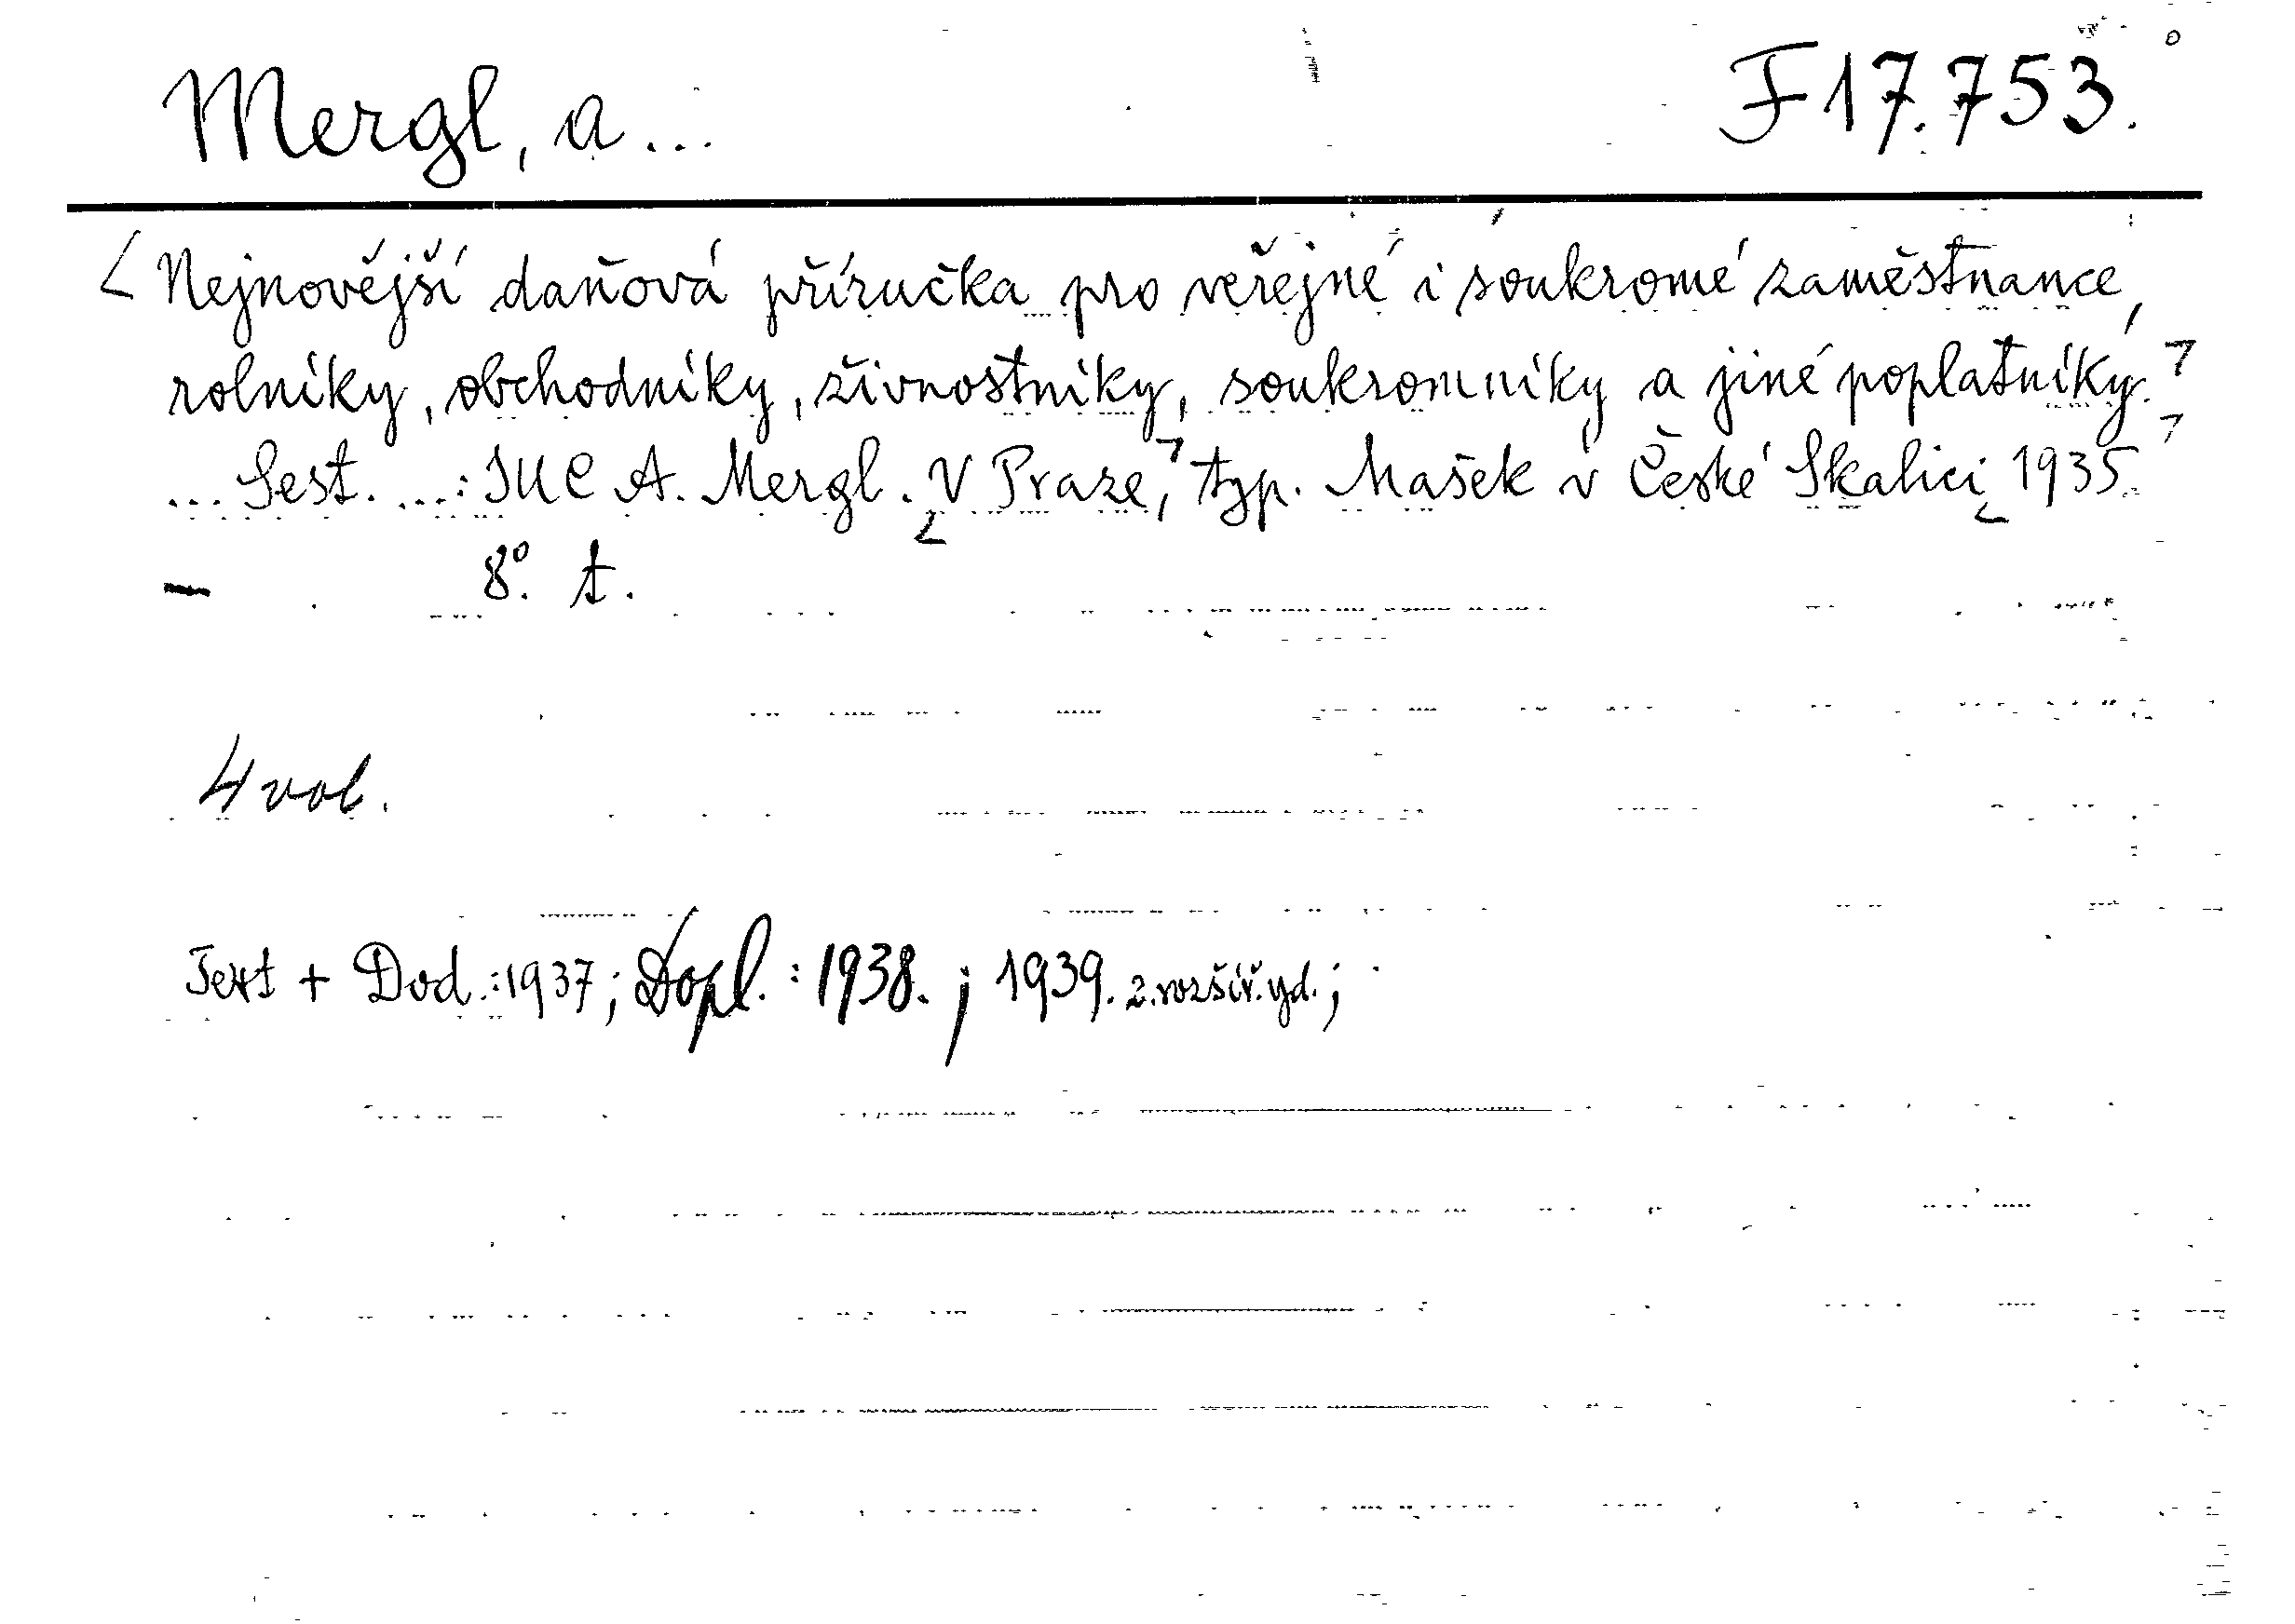 Mergl, a...
F 17.753.
Nejnovější daňová příručka pro veřejné i soukromé zaměstnance,
rolníky, obchodníky, živnostníky, soukromníky a jiné poplatníky.
... Sest. ...: JUC A. Mergl. V Praze, typ. Mašek v České Skalici 1935.
— 8°. t.
4 vol.
Text + Dod.: 1937; Dopl.: 1938.; 1939. 2. rozšíř. yd.;